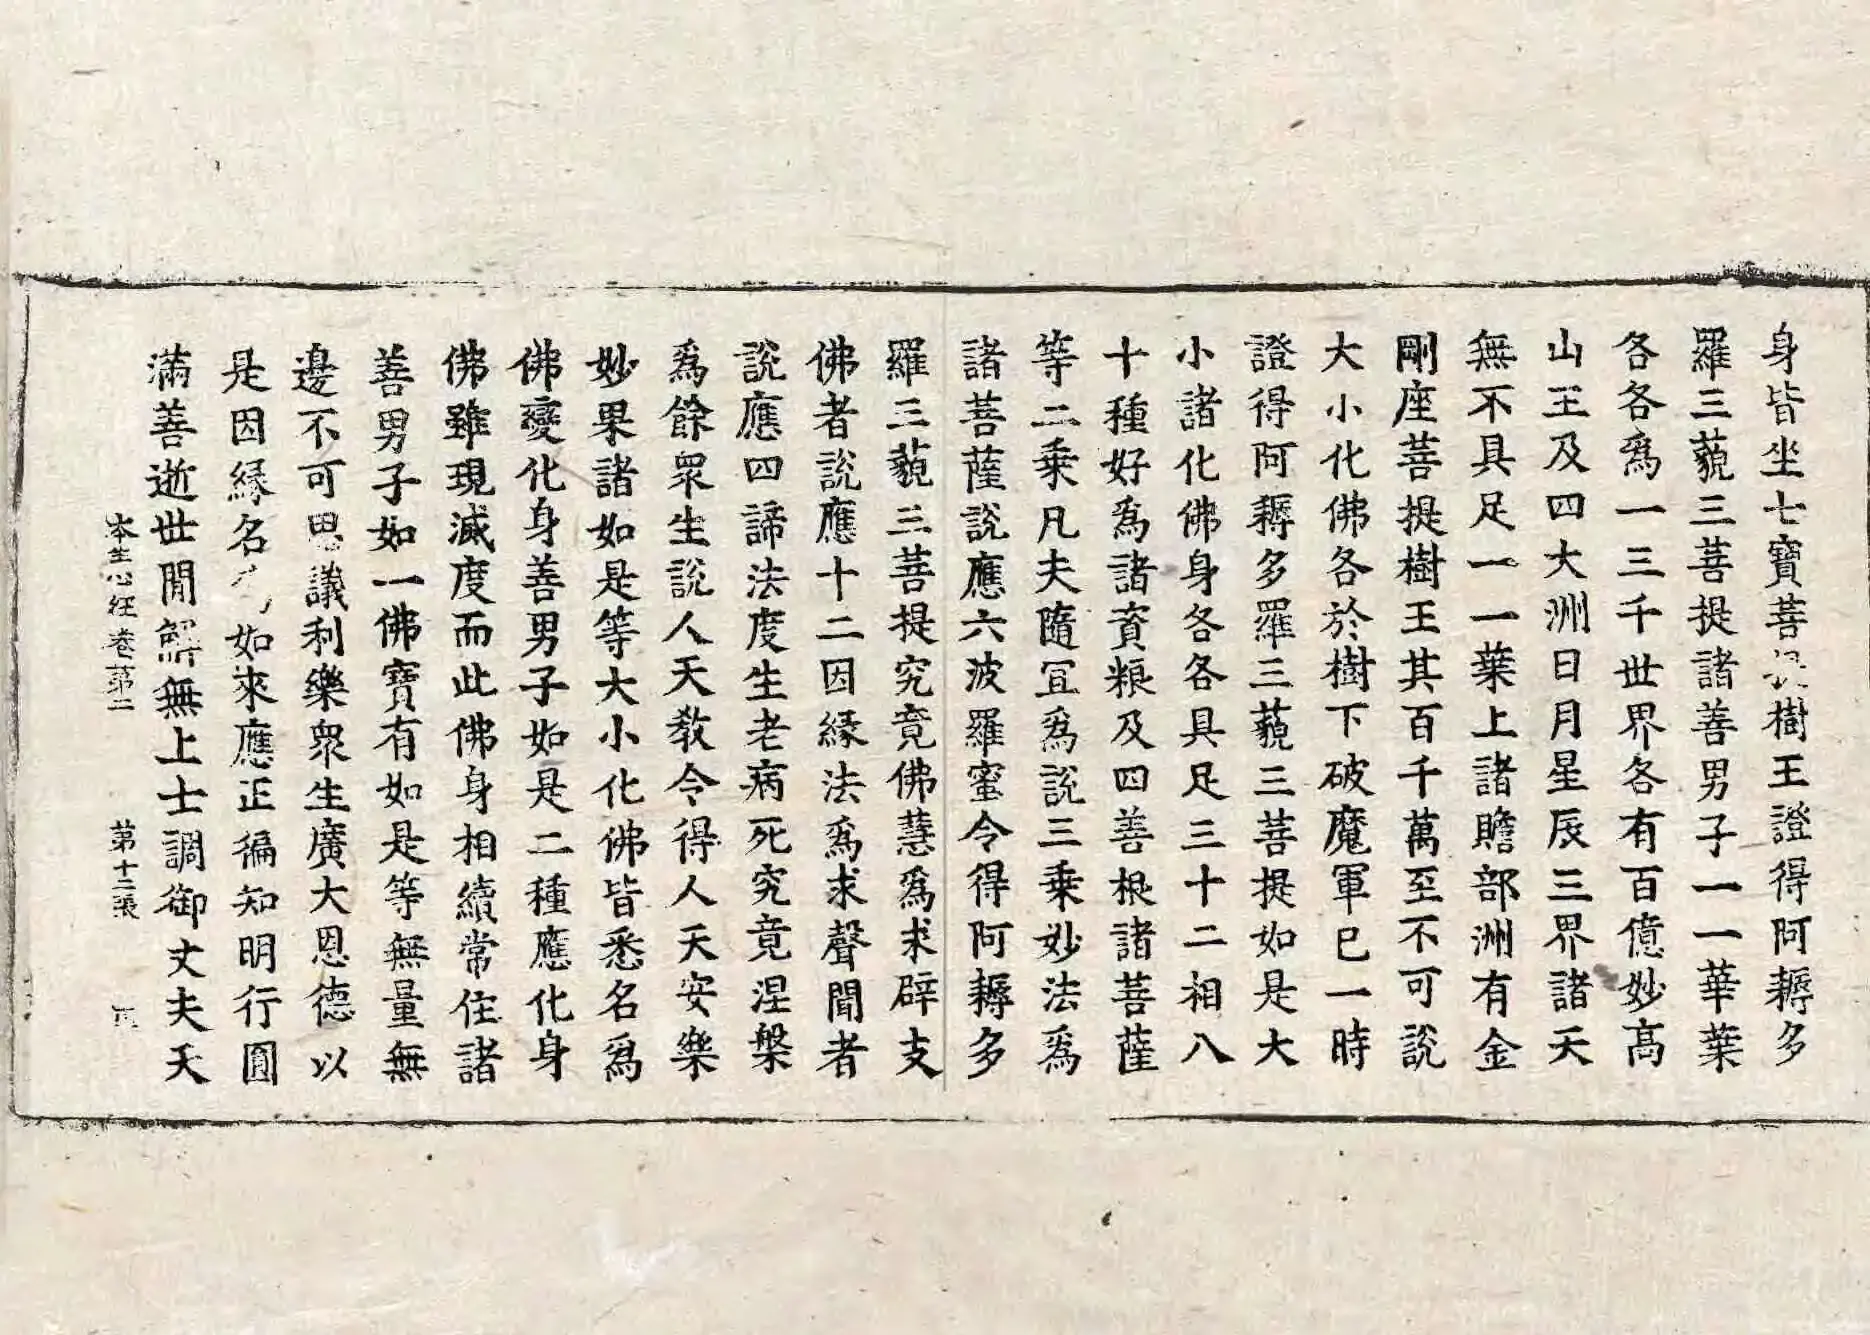 身皆坐七寶菩提樹王證得阿耨多
羅三藐三菩提諸善男子一一華葉
各各爲一三千世界各有百億妙高
山王及四大洲日月星辰三界諸天
無不具足一一葉上諸贍部洲有金
剛座菩提樹王其百千萬至不可說
大小化佛各於樹下破魔軍已一時
證得阿耨多羅三藐三菩提如是大
小諸化佛身各各具足三十二相八
十種好爲諸資粮及四善根諸菩薩
等二乘凡夫隨冝爲說三乘妙法爲
諸菩薩說應六波羅蜜令得阿耨多
羅三藐三菩提究竟佛慧爲求辟支
佛者說應十二因緣法爲求聲聞者
說應四諦法度生老病死究竟涅槃
爲餘眾生說人天教令得人天安樂
妙果諸如是等大小化佛皆悉名爲
佛變化身善男子如是二種應化身
佛雖現滅度而此佛身相續常住諸
善男子如一佛寶有如是等無量無
邊不可思議利樂眾生廣大恩德以
是因緣名爲如來應正徧知明行圓
滿善逝世閒解無上士調御丈夫天
本生心經卷第二 第十二張